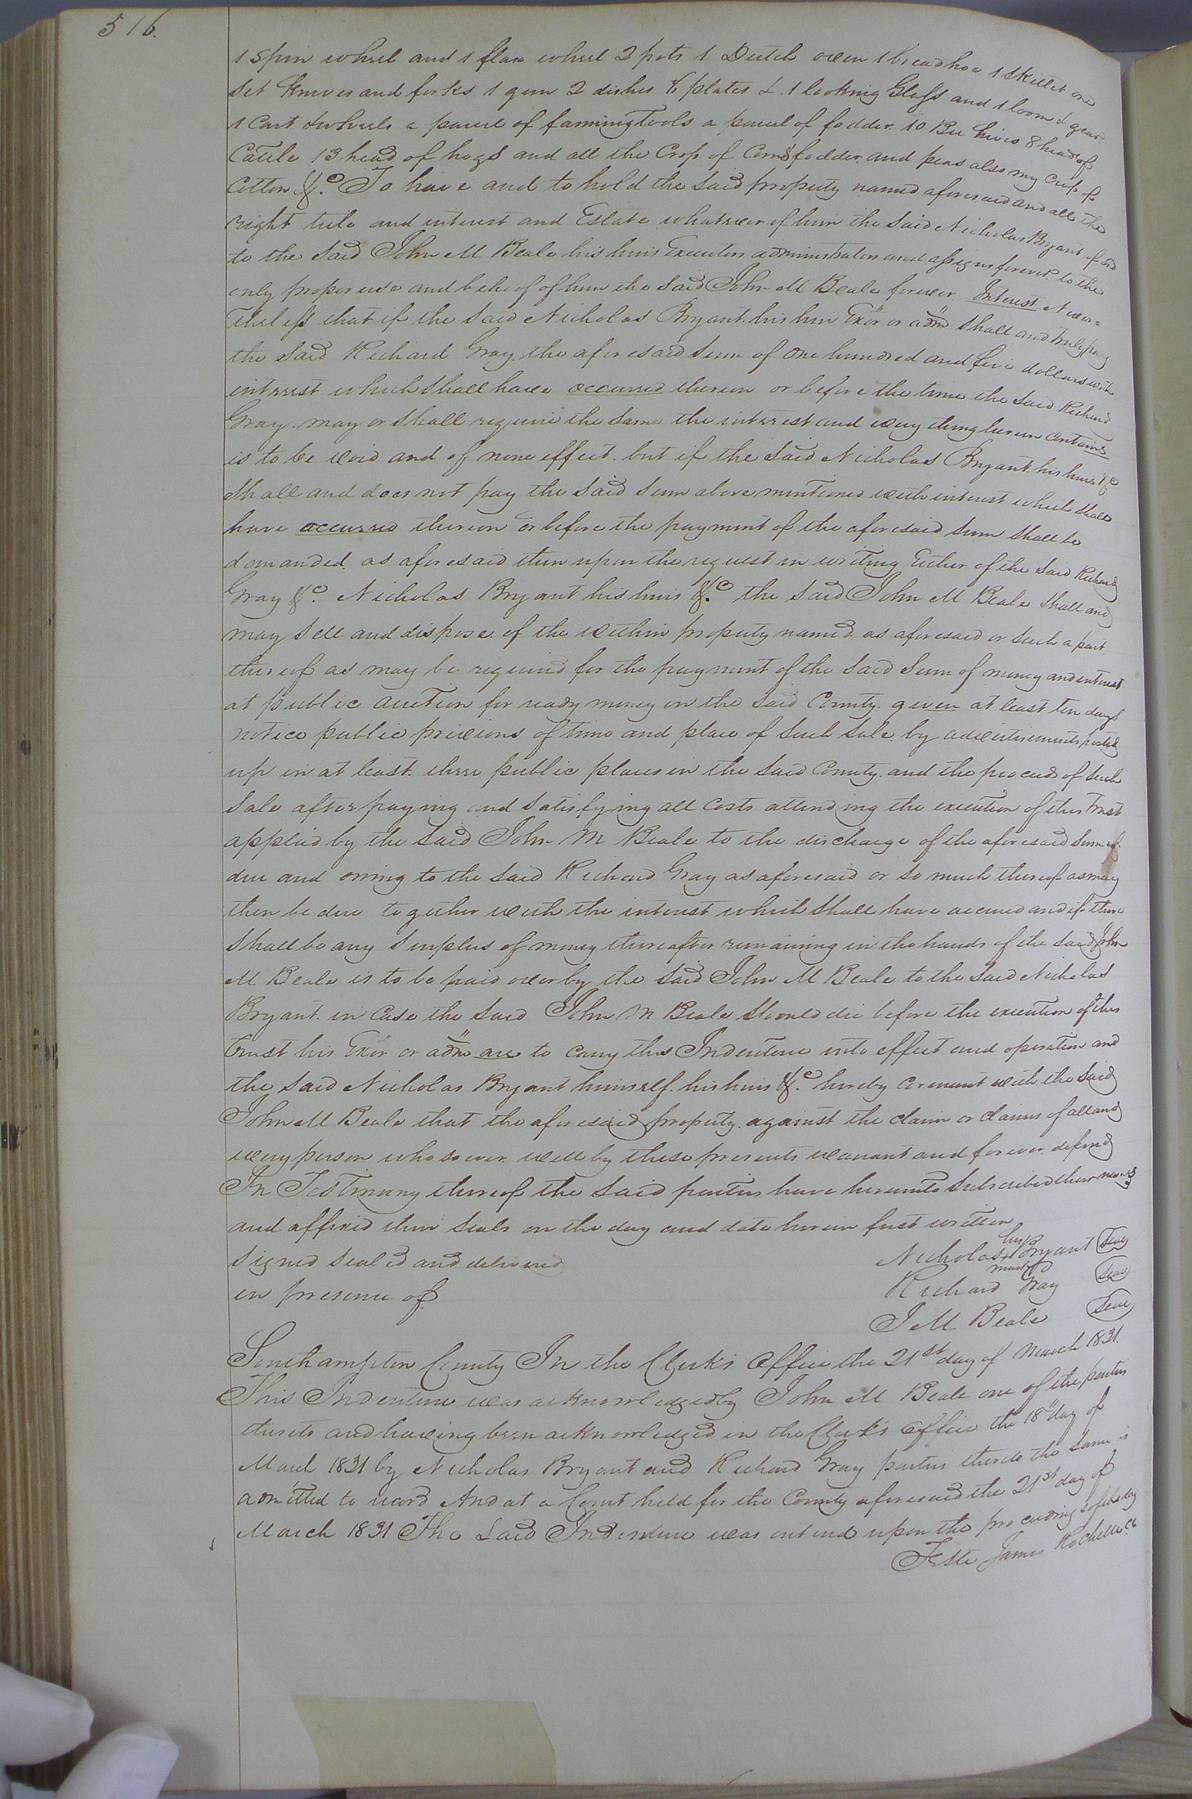 516.
1 Spin wheel and 1 flax wheel 2 pots 1 Dutch oven 1 bread hoe 1 Skillet one
Set Knives and forks 1 gun 2 dishes 6 plates & 1 looking Glass and 1 loom & gear
1 Cart & wheels a parcel of farming Tools a parcel of fodder. 10 Bee hives 8 head of
Cattle 13 head of hogs and all the Crop of Corn & fodder and peas also my Crop of
Cotton &c. To have and to hold the said property named aforesaid and all the
right title and interest and Estate whatever of him the said Nicholas Bryant of in
to the said John M Beale his heirs Executors administrators and assigns forever to the
only proper use and behoof of him the said John M Beale forever Interest Never=
theless that if the said Nicholas Bryant his heirs Exor or adm shall and truly pay
the said Richard Gray the aforesaid sum of One hundred and five dollars with
interest which shall have occurred thereon or before the time the said Richard
Gray may or shall require the same the interest and every thing herein contained
is to be void and of none effect. but if the said Nicholas Bryant his heirs &c
shall and does not pay the said sum above mentioned with interest which shall
have occurred thereon or before the payment of the aforesaid sum shall be
demanded as aforesaid then upon the request in writing Either of the said Richard
Gray &c. Nicholas Bryant his heirs &c. the said John M Beale shall and
may sell and dispose of the within property named as aforesaid or such a part
thereof as may be required for the payment of the said sum of money and interest
at public auction for ready money in the said County. given at least ten days
notice public previous of time and place of such sale by advertisements posted
up in at least three public places in the said County and the proceeds of such
Sale after paying and satisfying all costs attending the execution of this Trust
applied by the said John M Beale to the discharge of the aforesaid sum of
due and owing to the said Richard Gray as aforesaid or so much thereof as may
then be due together with the interest which shall have accrued and if there
shall be any surplus of money thereafter remaining in the hands of the said John
M Beale is to be paid over by the said John M Beale to the said Nicholas
Bryant. in case the said John M Beale should die before the execution of this
trust his Exor or adm are to carry this Indenture into effect and operation and
the said Nicholas Bryant himself his heirs &c. hereby covenant with the said
John M Beale that the aforesaid property against the claim or claims of all and
every person whosoever will by these presents warrant and forever defend
In Testimony thereof the said parties have hereunto subscribed their names
and affixed their seals on the day and date herein first written
Signed sealed and delivered
in presence of
Nicholas his + mark Bryant Seal
Richard Gray Seal
J M Beale Seal
Southampton County In the Clerk's Office the 21st day of March 1831.
This Indenture was acknowledged by John M Beale one of the parties
thereto and having been acknowledged in the Clerk's office the 18th day of
March 1831 by Nicholas Bryant and Richard Gray parties thereto the same is
admitted to record And at a Court held for the County aforesaid the 21st day of
March 1831 The said Indenture was entered upon the proceedings of the day
Teste James Rochelle Cl